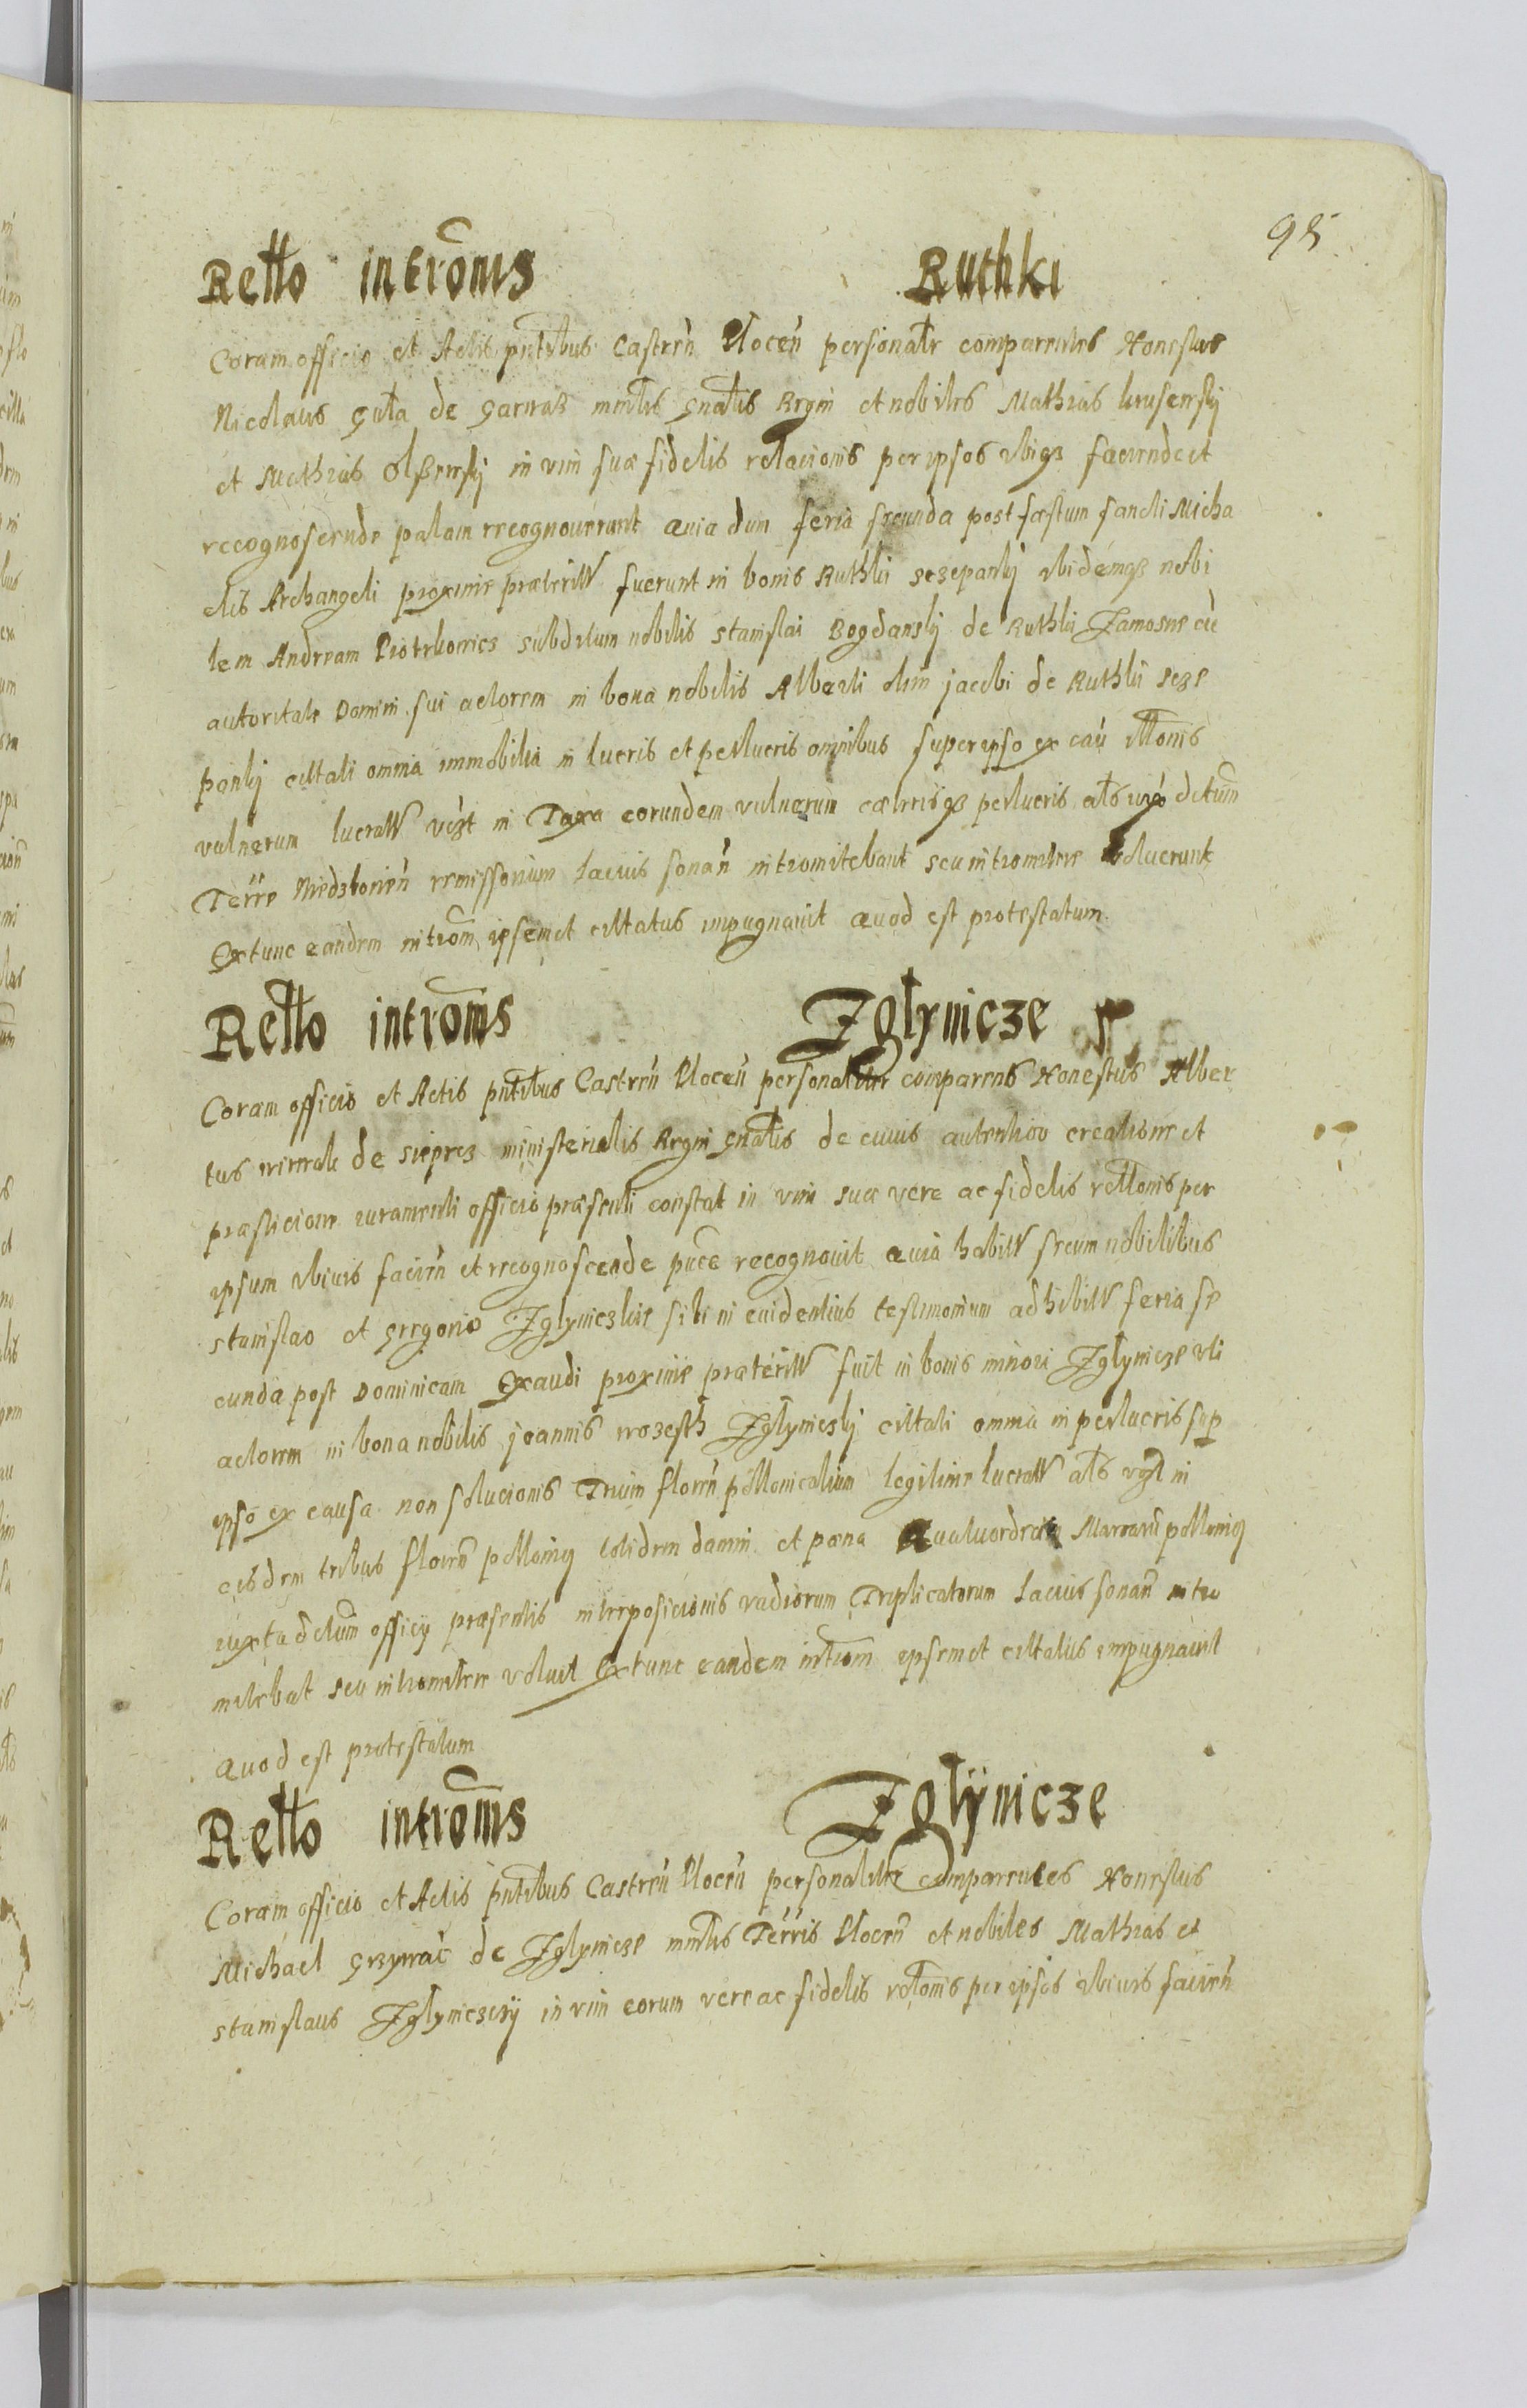 95
Retto introms Ruthki
Coram officio et Actis pntibus Castren Plocen personalr comparentes Honestus
Nicolaus Guta de mnlis Gnalis Regni et nobiles Mathias
et Mathias in vim suæ fidelis relacionis per ipsos ubiq3 faciende et
recognoscende palam recognouerunt quia dum feria secunda post fæstum sancti Micha
elis Archangeli proxime præterite fuerunt in bonis Ruthki sczepanki ibidemq3 nobi
lem Andream Piotrkowicz subditum nobilis stanislai Bogdanskj de Ruthki Zamosne cu
autoritate Domini sui actorem in bona nobilis Alberti olim jacobi de Ruthki scze
panki cittati omnia immobilia in lucris et perlucris omnibus super ipso ex cau ittonis
vulnerum lucratis vczt in Taxa eorundem vulnerum cæterisq3 perlucris als iuxo dctum
Terre remissorium lacius sonan intromitebant seu intromitere voluerunt
Extunc eandem introm ipsemet cittatus impugnauit Quod est protestatum
Retto introms Zglynicze
Coram officio et Actis pntibus Castren Plocen personaliter comparens Honestus Alber
tus de sieprcz ministerialis Regni Gnalis de cuius autentico creatione et
præsticione iuramenti officio præsenti constat in vim suæ vere ac fidelis rettonis per
ipsum ubiuis facien et recognoscende pnce recognouit quia habitis secum nobilibus
stanislao et Gregorio Zglyniczkie sibi in euidentius testimonium adhibitis feria se
cunda post Dominicam Exaudi proxime præterite fuit in bonis minori Zglynicze uti
actorem in bona nobilis joannis Zglynicskj cittati omnia in perlucris sup
ipso ex causa non solucionis Trium floren pollonicalium legitime lucratis als vczt in
eisdem tribus floren pollonicq totidem damni et pœna Quatuordecim Marcarum pollonicq
iuxta dctum officij præsentis interposicionis vadiorum Triplicatorum lacius sonan intro
mitebat seu intromitere voluit Extunc eandem introm ipsemet cittatus impugnauit
Quod est protestatum
Retto introms Zglÿnicze
Coram officio et Actis pntibus Castren Plocen personaliter comparentes Honestus
Michael de Zglynicze mnlis Terris Plocen et nobiles Mathias et
stanislaus in vim eorum vere ac fidelis rettonis per ipsos ubiuis facien